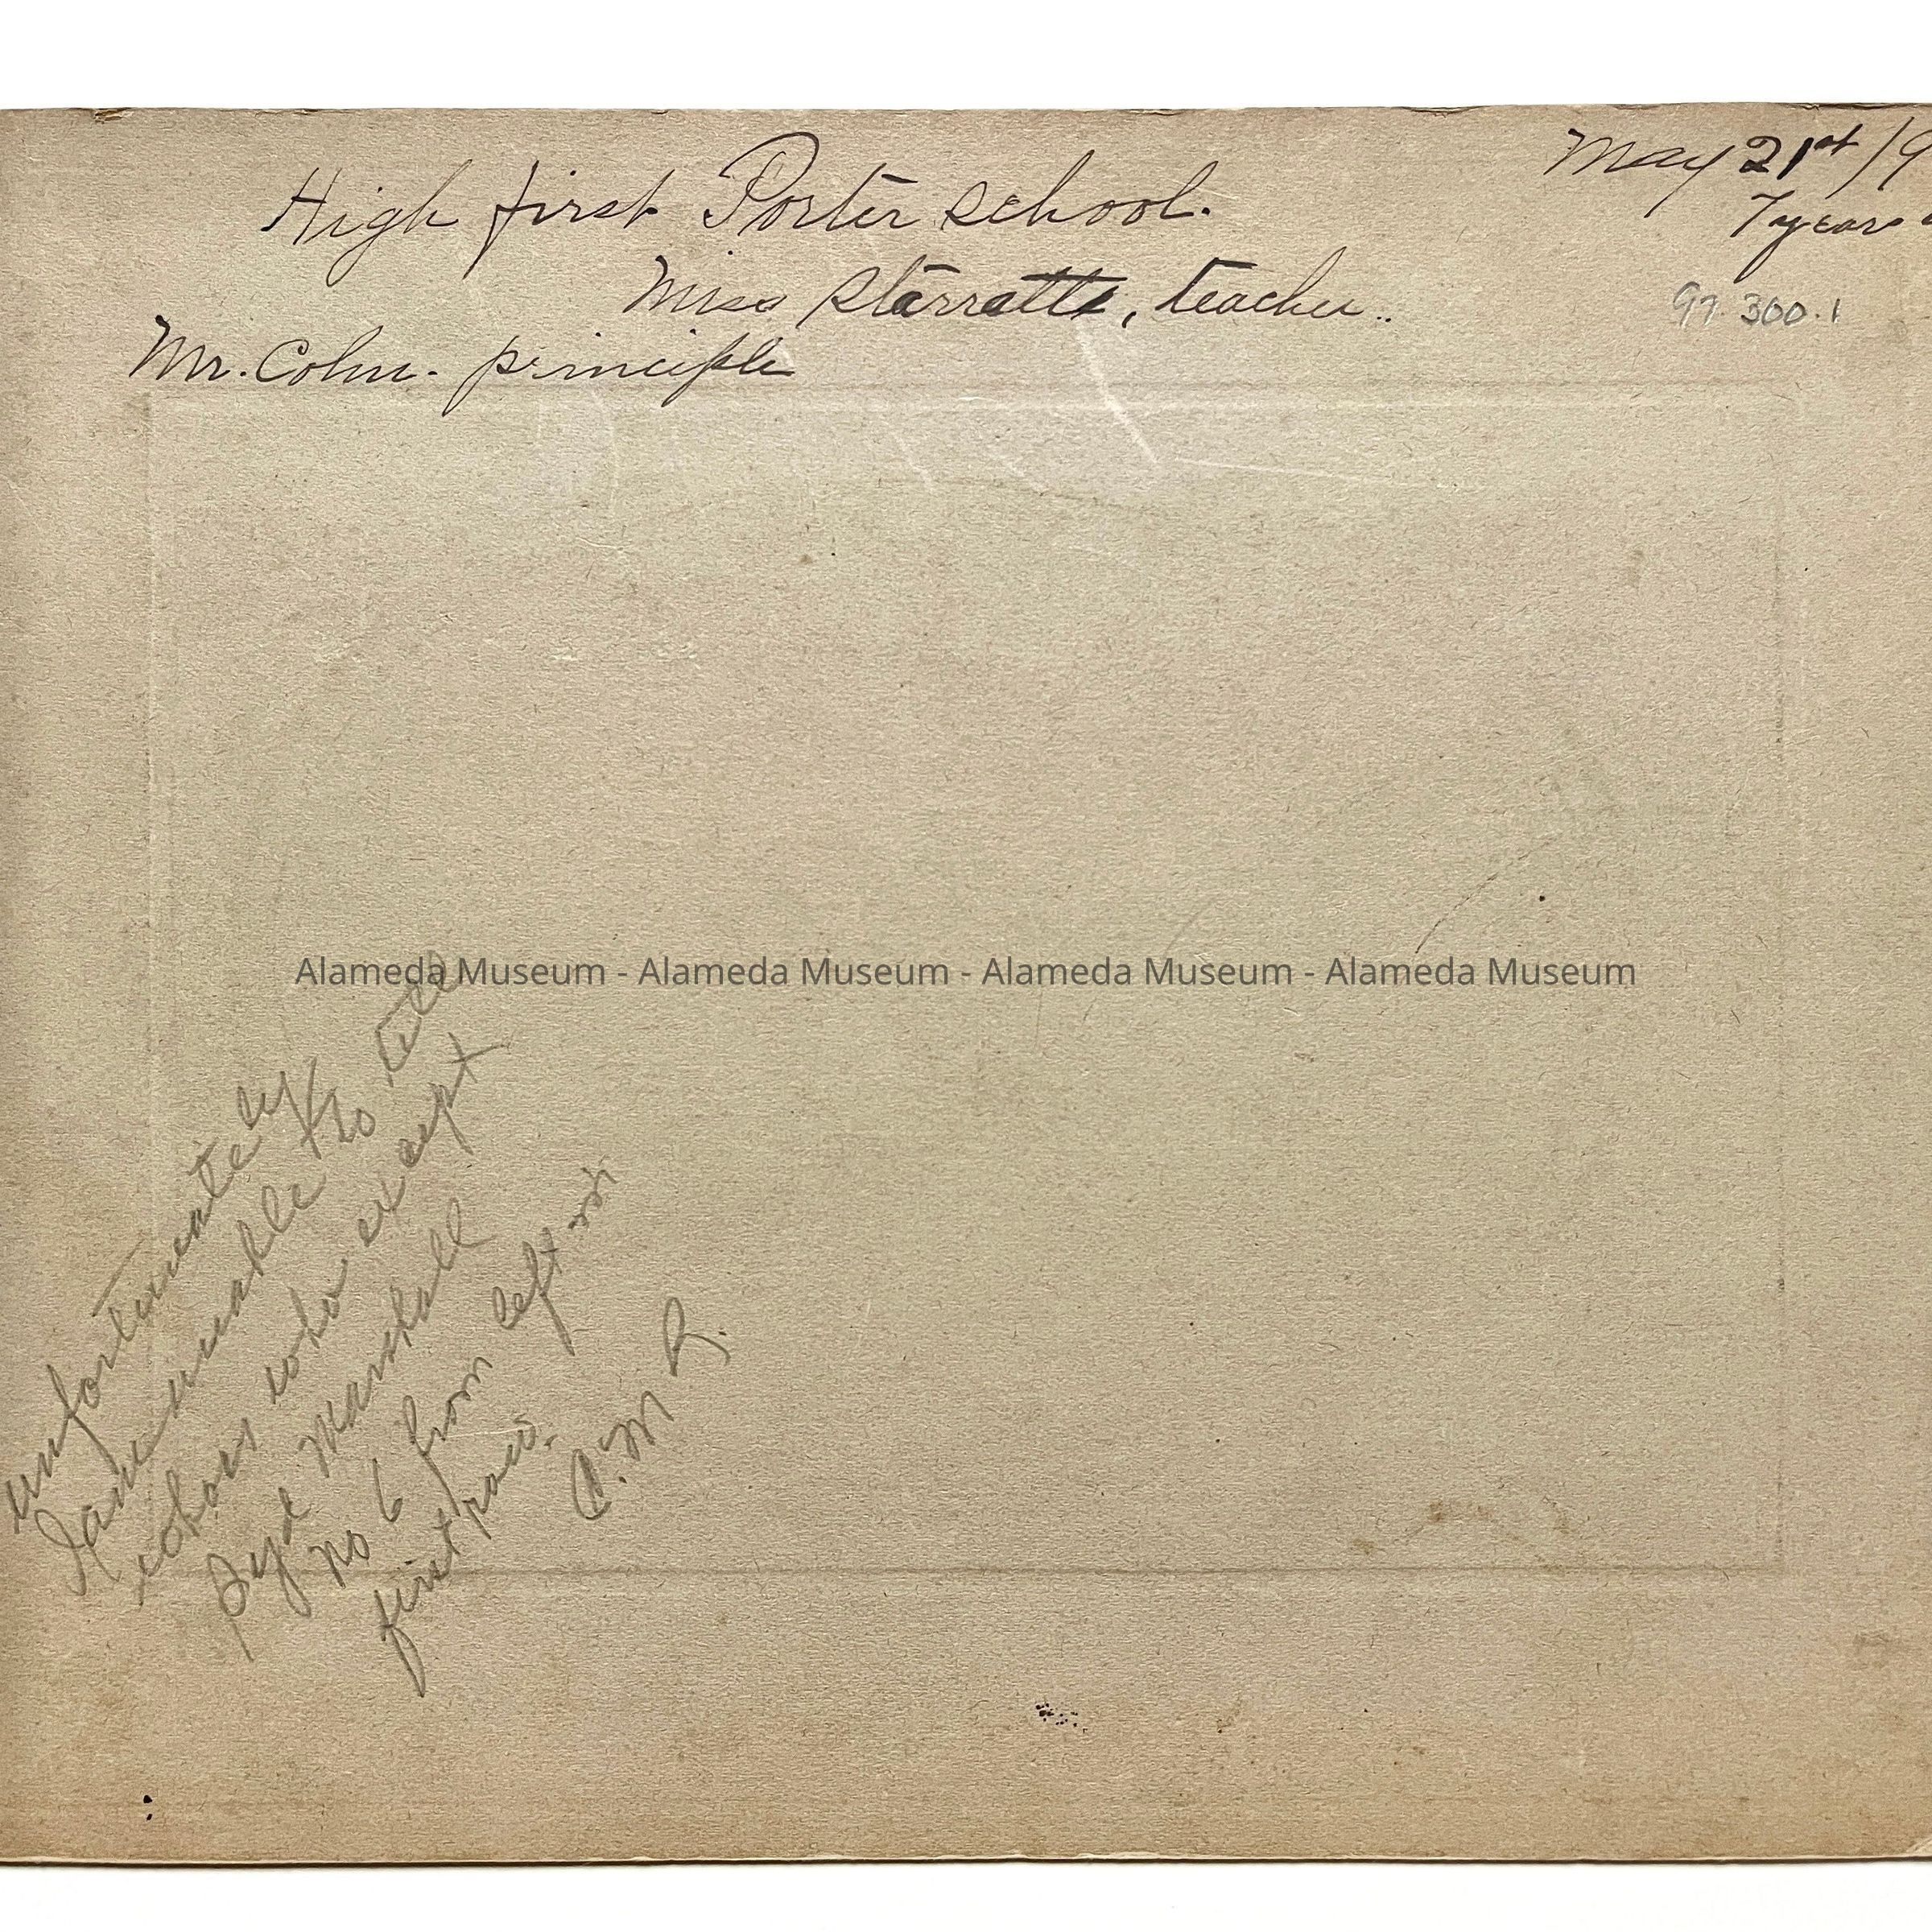 High first Porter school.
May 21st/9
7 years
Miss Starratte, teacher..
97.300.1
Mr. Cohn. principle
Alameda Museum - Alameda Museum - Alameda Museum - Alameda Museum
unfortunately
I am unable to tell
whos who except
Syd Marshall
no 6 from left in
first row.
C. M R.